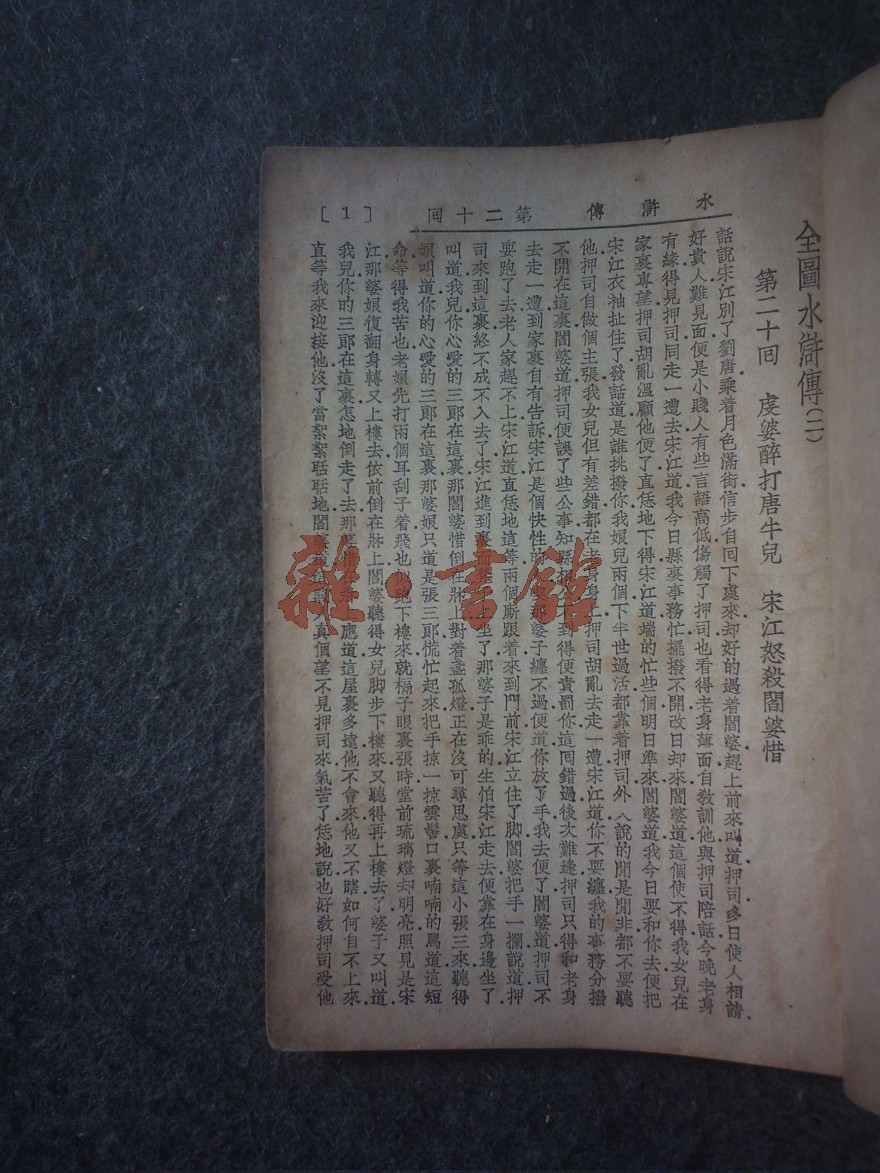 水滸傳 第二十回 [1]
全圖水滸傳(二)
第二十回 虔婆醉打唐牛兒 宋江怒殺閻婆惜
話說宋江別了劉唐乘着月色滿街信步自回下處來却好的遇着閻婆趕上前來叫道押司多日使人相請
好貴人難見面便是小賤人有些言語高低傷觸了押司也看得老身薄面自教訓他與押司陪話今晚老身
有緣得見押司同走一遭去宋江道我今日縣裏事務忙擺撥不開改日却來閻婆道這個使不得我女兒在
家裏專望押司胡亂溫顧他便了直恁地下得宋江道端的忙些個明日準來閻婆道我今日要和你去便把
宋江衣袖扯住了發話道是誰挑撥你我娘兒兩個下半世過活都靠着押司外人說的閒是閒非都不要聽
他押司自做個主張我女兒但有差錯都在老身身上押司胡亂去走一遭宋江道你不要纏我的事務分撥
不開在這裏閻婆道押司便誤了些公事知縣不到得便責罰你這回錯過後次難逢押司只得和老身
去走一遭到家裏自有告訴宋江是個快性的婆子纏不過便道你放了手我去便了閻婆道押司不
要跑了去老人家趕不上宋江道直恁地這等兩個廝跟着來到門前宋江立住了脚閻婆把手一攔說道押
司來到這裏終不成不入去了宋江進到裏面坐了那婆子是乖的生怕宋江走去便靠在身邊坐了
叫道我兒你心愛的三郎在這裏那閻婆惜倒在牀上對着盞孤燈正在沒可尋思處只等這小張三來聽得
娘叫道你的心愛的三郎在這裏那婆娘只道是張三郎慌忙起來把手掠一掠雲髻口裏喃喃的罵道這短
命等得我苦也老娘先打兩個耳刮子着飛也似跑下樓來就槅子眼裏張時堂前琉璃燈却明亮照見是宋
江那婆娘復翻身轉又上樓去依前倒在牀上閻婆聽得女兒脚步下樓來又聽得再上樓去了婆子又叫道
我兒你的三郎在這裏怎地倒走了去那婆惜應道這屋裏多遠他不會來他又不瞎如何自不上來
直等我來迎接他沒了當絮絮聒聒地閻婆道真個望不見押司來氣苦了恁地說也好教押司受他
雜·書館